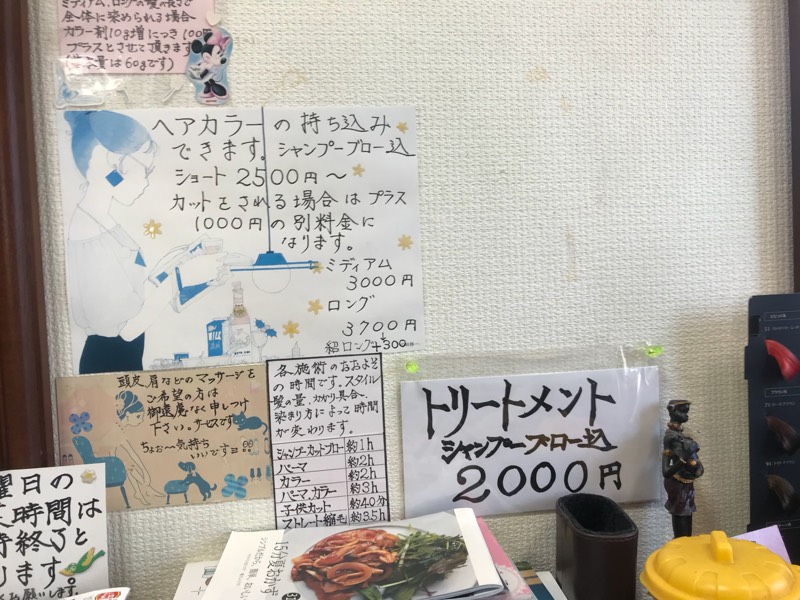 ミディアム、ロングの髪の長さで
全体に染められる場合
カラー剤10g増につき100円
プラスとさせて頂きます
量は60gです)
ヘアカラーの持ち込み
できます。シャンプーブロー込
ショート2500円〜
カットをされる場合はプラス
1000円の別料金に
なります。
ミディアム
3000円
ロング
3700円
超ロング+300
頭皮、肩などのマッサージを
ご希望の方は
御遠慮なく申しつけ
下さい。サービスです
ちょおー気持ち
いいですヨ
各施術のおおよそ
の時間です。スタイル
髪の量、かかり具合、
染まり方によって時間
が変わります。
シャンプーカットブロー 約1h
パーマ 約2h
カラー 約2h
パーマ、カラー 約3h
子供カット 約40分
ストレート縮毛 約3.5h
トリートメント
シャンプーブロー込
2000円
曜日の
時間は
終了と
ります。
お願いします。
15分夏おかず